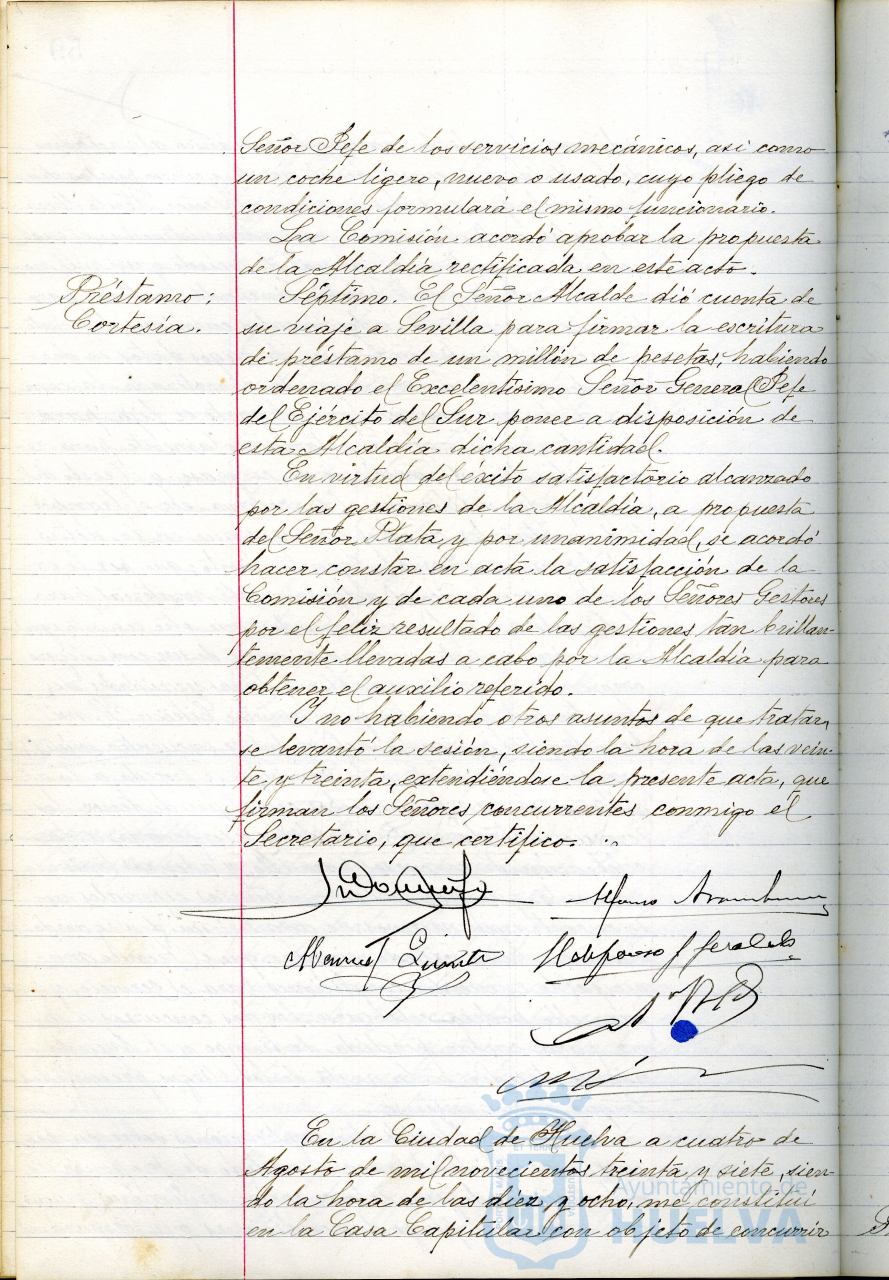 Señor Jefe de los servicios mecánicos, asi como
un coche ligero, nuevo o usado, cuyo pliego de
condiciones formulará el mismo funcionario.
La Comisión acordó aprobar la propuesta
de la Alcaldía rectificada en este acto.
Préstamo:
Cortesía.
Séptimo. El Señor Alcalde dió cuenta de
su viaje a Sevilla para firmar la escritura
de préstamo de un millón de pesetas, habiendo
ordenado el Excelentísimo Señor General Jefe
del Ejército del Sur poner a disposición de
esta Alcaldía dicha cantidad.
En virtud del éxito satisfactorio alcanzado
por las gestiones de la Alcaldía, a propuesta
del Señor Plata y por unanimidad, se acordó
hacer constar en acta la satisfacción de la
Comisión y de cada uno de los Señores Gestores
por el feliz resultado de las gestiones tan brillan-
temente llevadas a cabo por la Alcaldía para
obtener el auxilio referido.
Y no habiendo otros asuntos de que tratar,
se levantó la sesión, siendo la hora de las vein-
te y treinta, extendiéndose la presente acta, que
firman los Señores concurrentes conmigo el
Secretario, que certifico.
Alfonso
Manuel
En la Ciudad de Huelva a cuatro de
Agosto de mil novecientos treinta y siete, sien-
do la hora de las diez y ocho, me constituí
en la Casa Capitular con objeto de concurrir
Ayuntamiento de
HUELVA